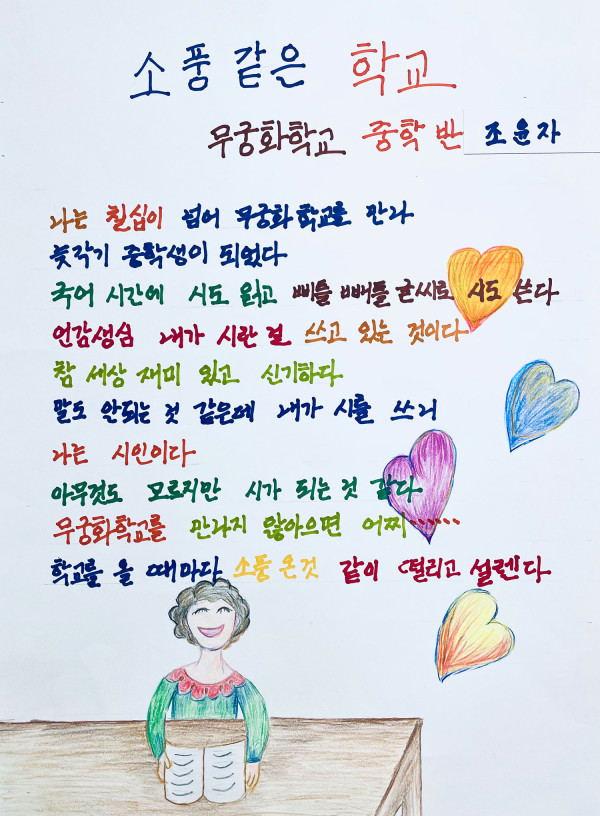 소풍 같은 학교
무궁화학교 중학반 조윤자
나는 칠십이 넘어 무궁화학교를 만나
늦깍기 중학생이 되었다
국어 시간에 시도 읽고 삐틀 빼틀 글씨로 시도 쓴다
언감생심 내가 시란 걸 쓰고 있는 것이다
참 세상 재미 있고 신기하다
말도 안되는 것 같은데 내가 시를 쓰니
나는 시인이다
아무것도 모르지만 시가 되는 것 같다
무궁화학교를 만나지 않아으면 어찌······
학교를 올 때마다 소풍 온것 같이 떨리고 설렌다